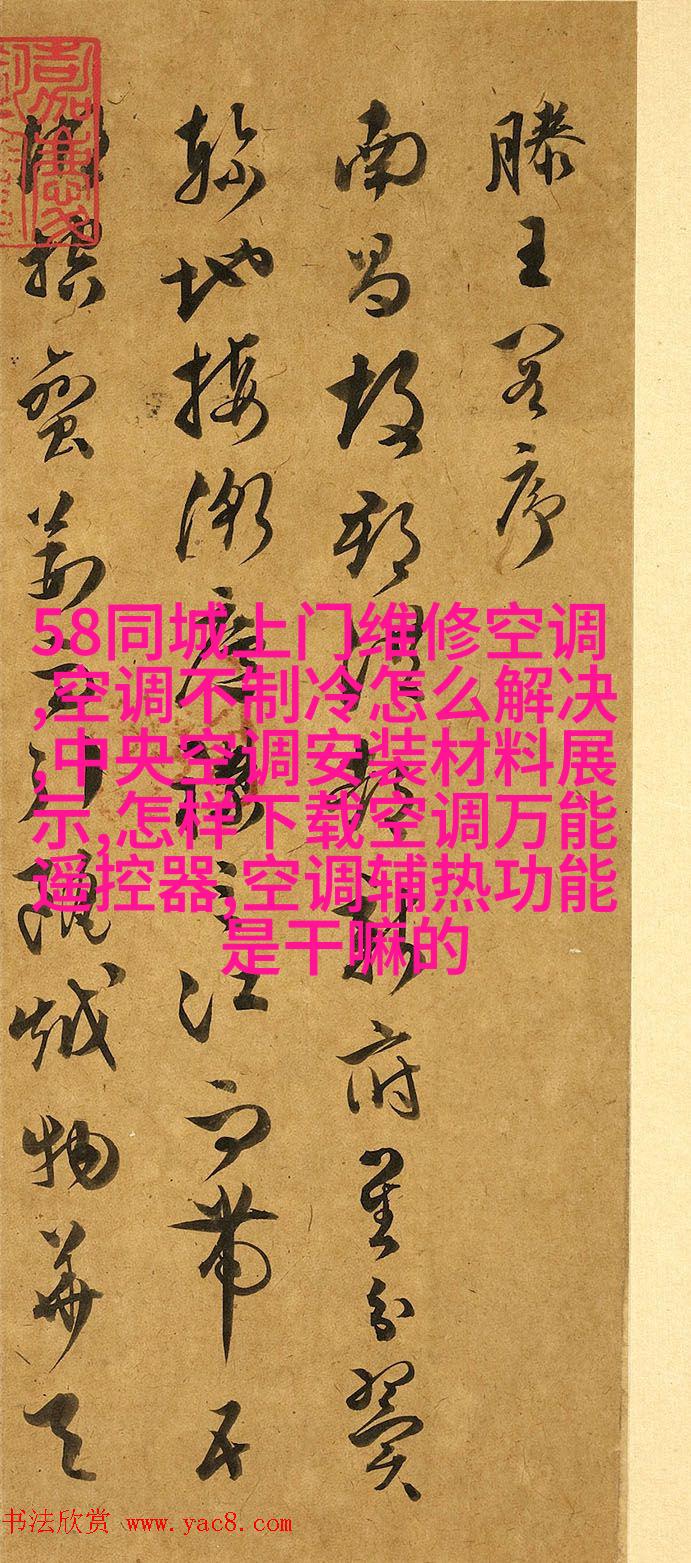 滕王閣序
南昌故郡洪都新府星分翼
軫地接衡廬襟三江而帶五
湖控蠻荊而引甌越物華天
58同城上门维修空调
,空调不制冷怎么解决
,中央空调安装材料展
示,怎样下载空调万能
遥控器,空调辅热功能
是干嘛的
书法欣赏 www.yac8.com